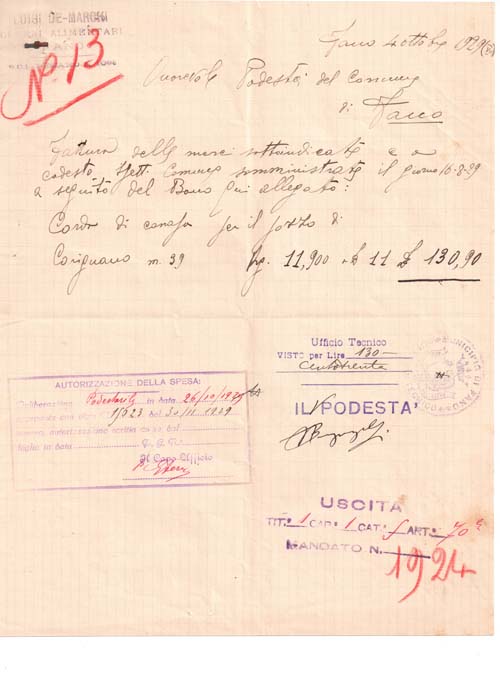 LUIGI DE-MARCHI
ALIMENTARI
FANO
No 13
Fano 4 ottobre 1929
Onorevole Podestà del Comune
di Fano
Fattura delle merci sottoindicate e a
codesto Spett. Comune somministrate il giorno 16-8-29
a seguito del Buono qui allegato:
Corda di canapa per il pozzo di
Carignano m. 39 Kg. 11,900 a £ 11 £ 130,90
Ufficio Tecnico
VISTO per Lire 130-
Centotrenta
MUNICIPIO DI FANO
IL PODESTA'
AUTORIZZAZIONE DELLA SPESA:
Deliberazione Podestarile in data 26/10/1929
1523 del 30/11 1929
autorizzazione scritta
in data
Il Capo Ufficio
USCITA
TIT. 1 CAP. 1 CAT. f ART. 70
MANDATO N.
1924